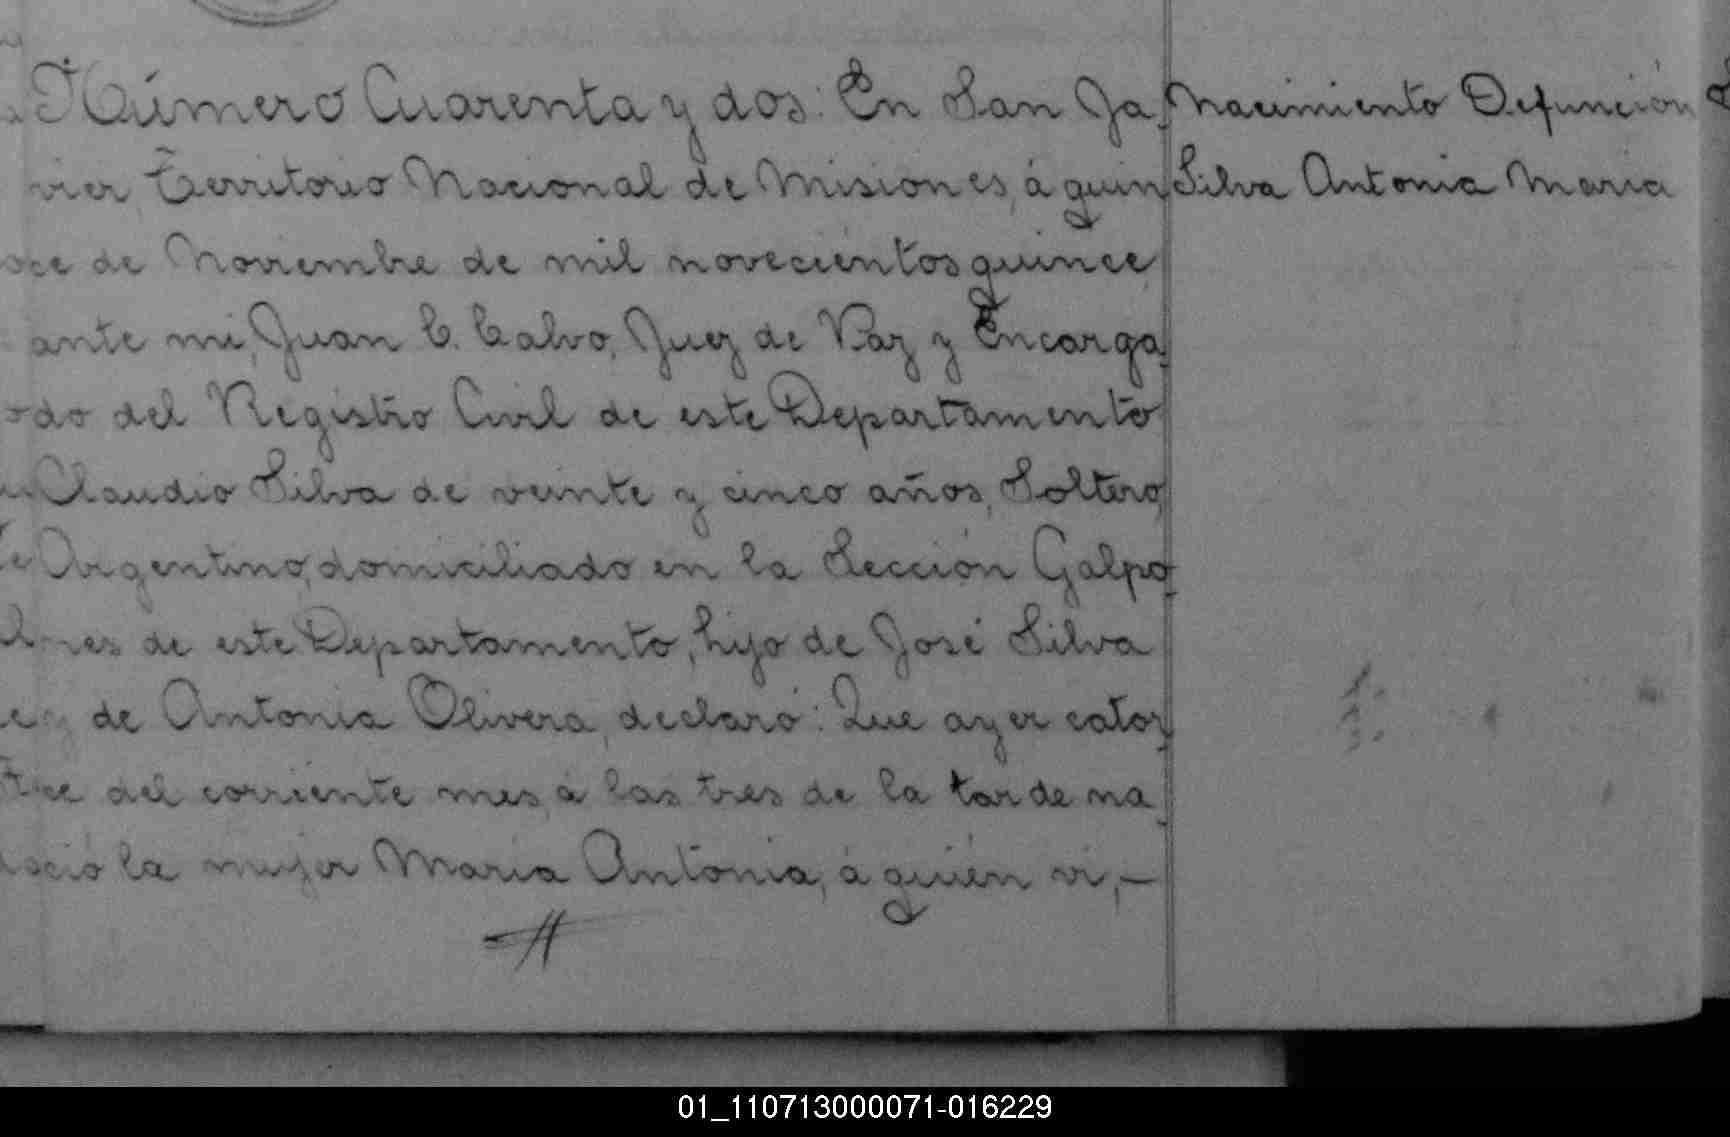 Número Cuarenta y dos: En San Ja-
vier, Territorio Nacional de Misiones, á quin
ce de Noviembre de mil novecientos quince,
ante mi, Juan C. Calvo, Juez de Paz y Encarga-
do del Registro Civil de este Departamento
Claudio Silva de veinte y cinco años, Soltero,
Argentino, domiciliado en la Sección Galpo-
nes de este Departamento, hijo de José Silva
y de Antonia Olivera, declaró: Que ayer cator-
ce del corriente mes, á las tres de la tarde na-
ció la mujer María Antonia, á quién vi,—
Nacimiento Defunción
Silva Antonia María
01_110713000071-016229